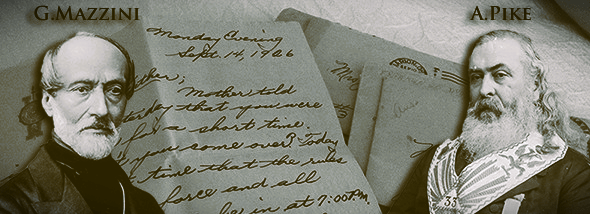 G.Mazzini
A.Pike
Monday Evening
Sept. 14, 1926
ther;
Mother told
terday that you were
for a short time.
you some over? Today
t time that the rules
force and all
be in at 7:00 P.M.
33